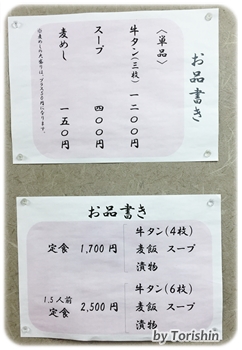 お品書き
〈単品〉
牛タン(三枚) 一二〇〇円
スープ 四〇〇円
麦めし 一五〇円
お品書き
定食 1,700円
牛タン(4枚)
麦飯 スープ
漬物
1.5人前
定食 2,500円
牛タン(6枚)
麦飯 スープ
漬物
by Torishin